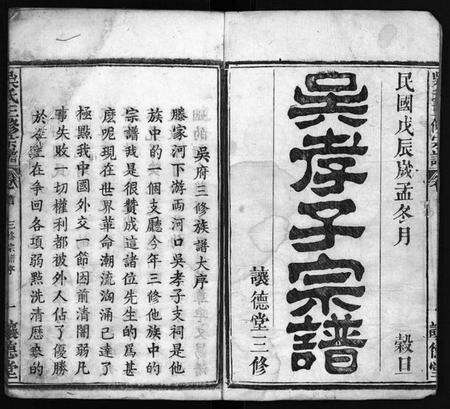 民國戊辰歲孟冬月
穀旦
吳孝子宗譜
讓德堂三修
吳府三修族譜大序
滕家河下游兩河口吳孝子支祠是他
族中的一個支廳今年三修他族中的
宗譜我是很贊成這諸位先生的爲甚
麽呢現在世界革命潮流洶湧已達了
極點我中國外交一節因前清闇弱凡
事失敗一切權利都被外人佔了優勝
於今在爭回各項弱點洗清歷來的
吳氏三修宗譜
一
讓德堂